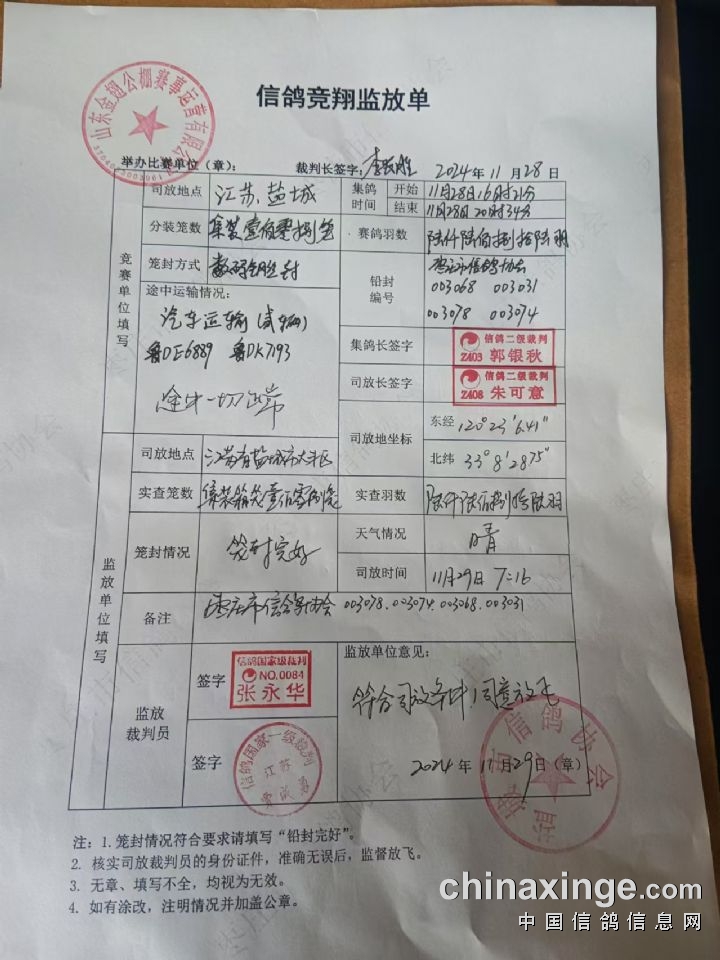 信鸽竞翔监放单
山东金翅公棚赛事运营有限公司
举办比赛单位（章）： 裁判长签字： 2024年11月28日
竞赛单位填写
司放地点 江苏盐城 集鸽时间 开始 11月28日16时21分
结束 11月28日20时34分
分装笼数 集装壹佰零捌笼 赛鸽羽数 陆仟陆佰捌拾陆羽
笼封方式 铅封编号 枣庄市信鸽协会
003068 003031
003078 003074
途中运输情况：
汽车运输（贰辆）
鲁DE6889 鲁DK7193
途中一切正常
集鸽长签字 信鸽二级裁判
Z403 郭银秋
司放长签字 信鸽二级裁判
Z408 朱可意
司放地坐标 东经 120°23′6.41″
北纬 33°8′28.75″
监放单位填写
司放地点 江苏省盐城市大丰区
实查笼数 集装箱笼壹佰零捌笼 实查羽数 陆仟陆佰捌拾陆羽
笼封情况 笼封完好 天气情况 晴
司放时间 11月29日 7:16
备注 枣庄市信鸽协会 003078.003074.003068.003031
监放裁判员
签字 信鸽国家级裁判
NO.0084
张永华
签字 信鸽国家一级裁判
江苏
监放单位意见：
符合司放条件，同意放飞
2024年11月29日（章）
市信鸽协会
注：1. 笼封情况符合要求请填写“铅封完好”。
2. 核实司放裁判员的身份证件，准确无误后，监督放飞。
3. 无章、填写不全，均视为无效。
4. 如有涂改，注明情况并加盖公章。
chinaxinge.com
中国信鸽信息网